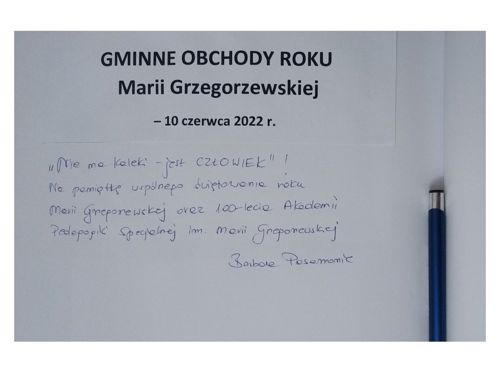 GMINNE OBCHODY ROKU
Marii Grzegorzewskiej
– 10 czerwca 2022 r.
„Nie ma kaleki – jest CZŁOWIEK"!
Na pamiątkę wspólnego świętowania roku
Marii Grzegorzewskiej oraz 100-lecia Akademii
Pedagogiki Specjalnej im. Marii Grzegorzewskiej
Barbara